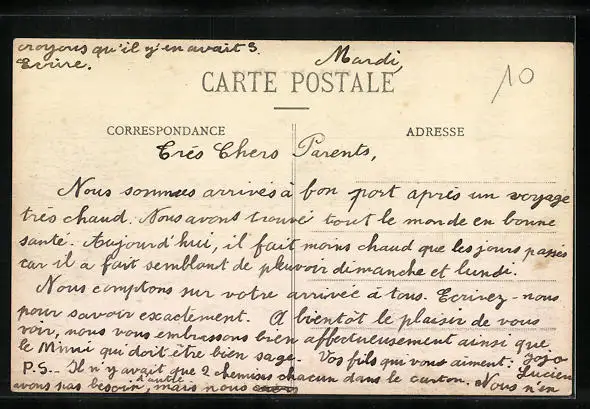 croyons qu'il y'en avait 3.
Ecrire.
Mardi,
10
CARTE POSTALE
CORRESPONDANCE
ADRESSE
Très Chers Parents,
Nous sommes arrivés à bon port après un voyage
très chaud. Nous avons trouvé tout le monde en bonne
santé. Aujourd'hui, il fait moins chaud que les jours passés
car il a fait semblant de pleuvoir dimanche et lundi.
Nous comptons sur votre arrivée à tous. Ecrivez-nous
pour savoir exactement. A bientôt le plaisir de vous
voir, nous vous embrassons bien affectueusement ainsi que
le Mimi qui doit être bien sage. Vos fils qui vous aiment: Jojo
Lucien
P.S.- Il n'y avait que 2 chemises chacun dans le carton. Nous n'en
avons pas besoin d'autre, mais nous